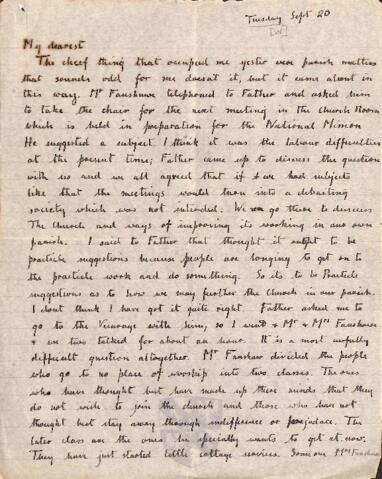 Tuesday Sept 20
[W]
My dearest
The cheef thing that occupied me yester were parish matters
that sounds odd for me doesnt it, but it came about in
this way. Mr Fanshawe telephoned to Father and asked him
to take the chair for the next meeting in the Church Room
which is held in preparation for the National Mission
He suggested a subject I think it was the labour difficulties
at the present time; Father came up to discuss the question
with us and we all agreed that if we had subjects
like that the meetings would turn into a debating
society which was not intended. We go there to discuss
The Church and ways of improving its working in our own
parish. I said to Father that thought it ought to be
practicle suggestions because people are longing to get on to
the practicle work and do something. So its to be Practicle
suggestions as to how we may further the church in our parish.
I dont think I have got it quite right. Father asked me to
go to the Vicarage with him, so I went & Mr & Mrs Fanshawe
& we two talked for about an hour. It is a most awfully
difficult question altogether. Mr Fanshaw divided the people
who go to no place of worship into two classes. The ones
who have thought but have made up there minds that they
do not wish to join the church and those who have not
thought but stay away through indifference or prejudace. The
later class are the ones he specialy wants to get at now.
They have just started little cottage services. Someone Mrs Fanshaw